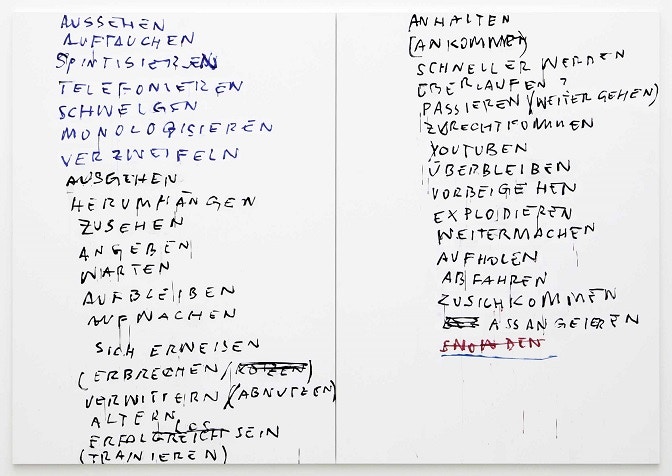 AUSSEHEN
AUFTAUCHEN
SPINTISIEREN
TELEFONIEREN
SCHWELGEN
MONOLOGISIEREN
VERZWEIFELN
AUSGEHEN
HERUMHÄNGEN
ZUSEHEN
ANGEBEN
WARTEN
AUFBLEIBEN
AUFWACHEN
SICH ERWEISEN
(ERBRECHEN/KOTZEN)
VERWITTERN/(ABNUTZEN)
ALTERN
LOS
ERFOLGREICH SEIN
(TRAINIEREN)
ANHALTEN
(ANKOMMEN)
SCHNELLER WERDEN
ÜBERLAUFEN?
PASSIEREN/(WEITERGEHEN)
ZURECHTKOMMEN
YOUTUBEN
ÜBERBLEIBEN
VORBEIGEHEN
EXPLODIEREN
WEITERMACHEN
AUFHOLEN
ABFAHREN
ZUSICHKOMMEN
ASSANGEIEREN
SNOWDEN